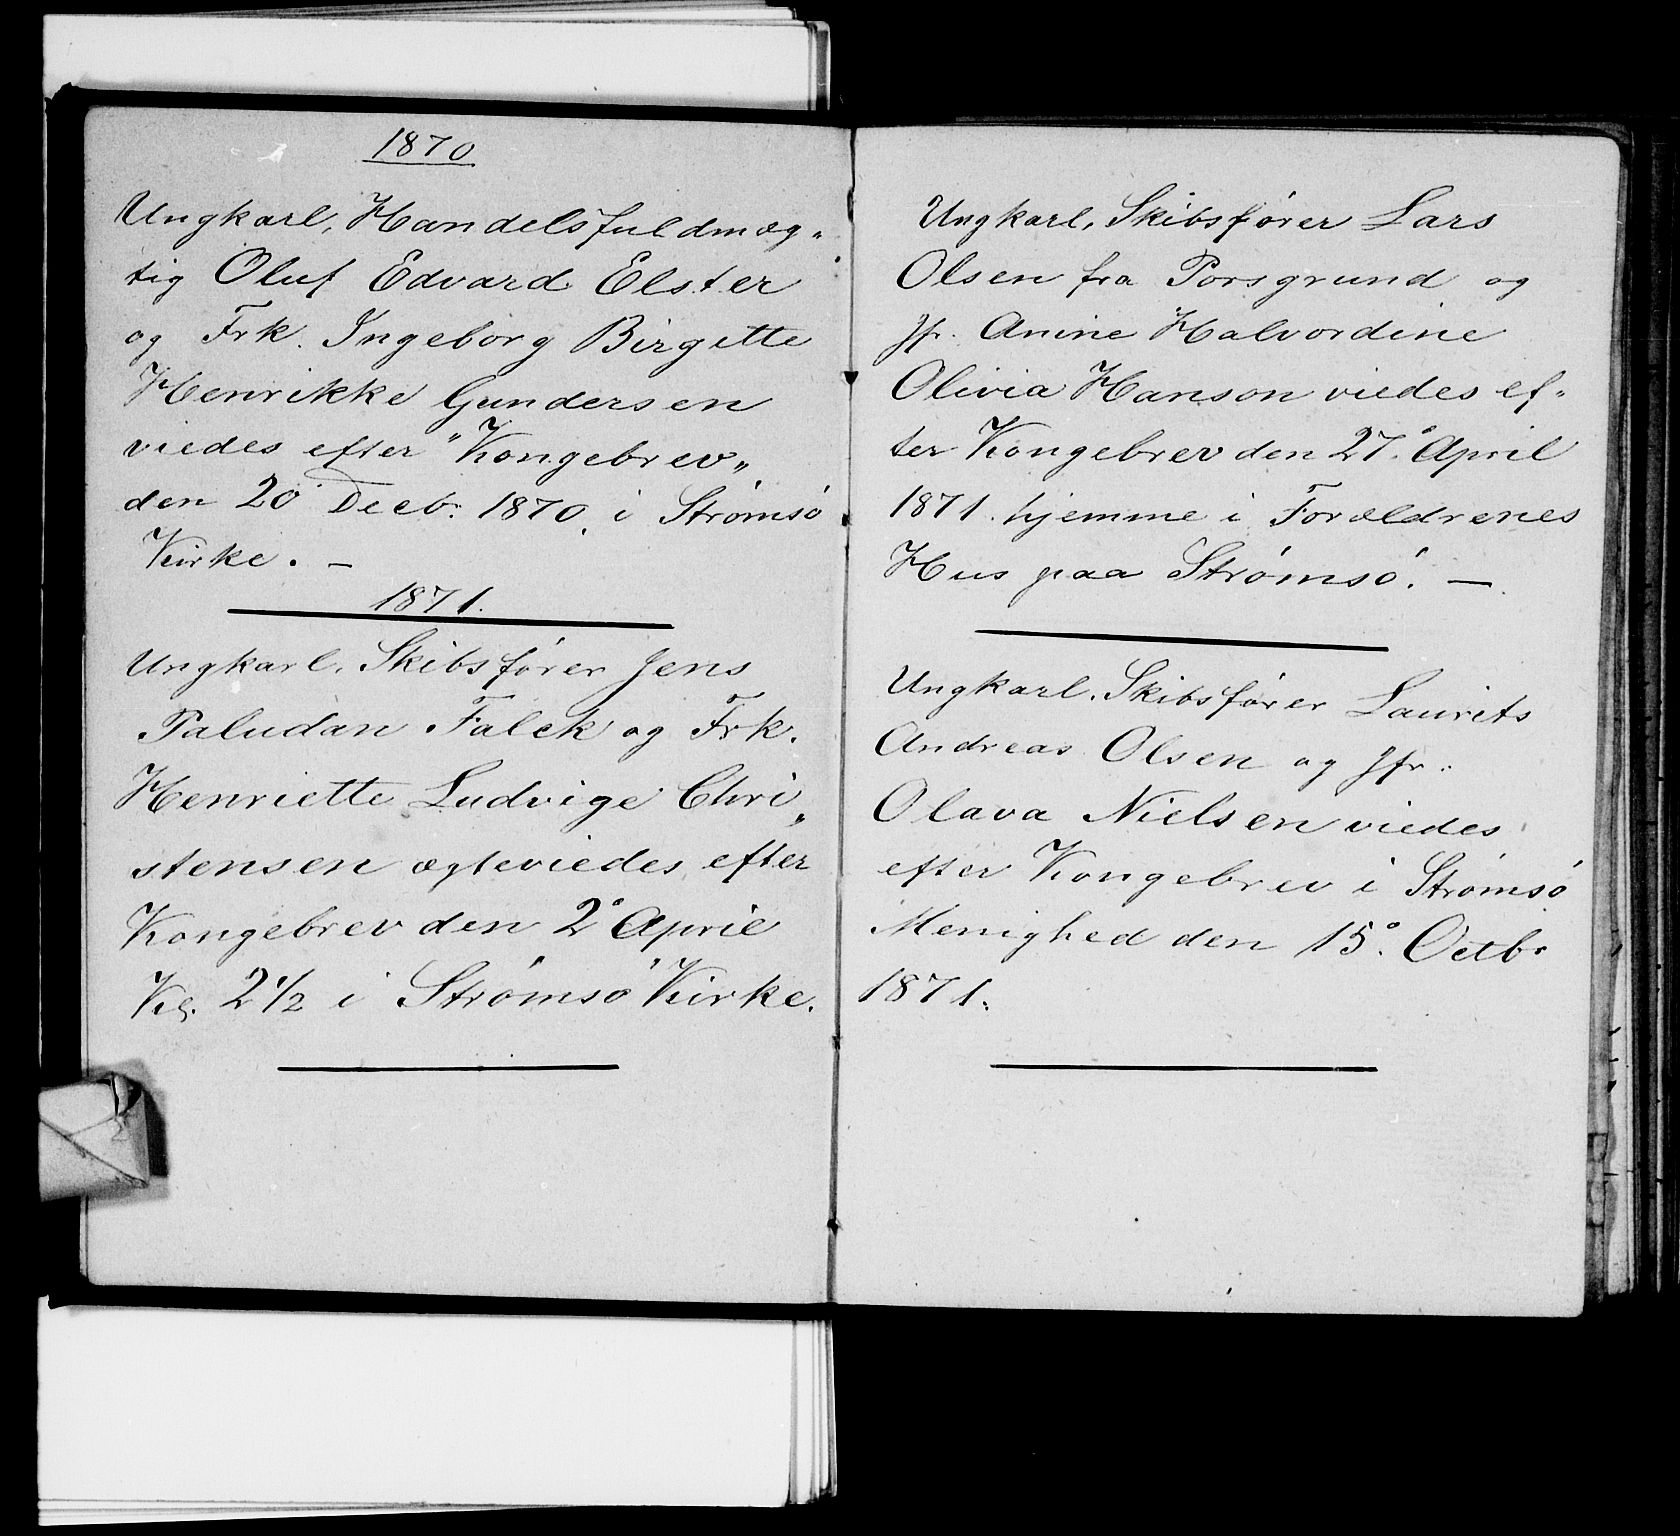 1870
Ungkarl, Handelsfuldmæg„
tig Oluf Edvard Elster
og Frk. Ingeborg Birgitte
Henrikke Gundersen
viedes efter "Kongebrev„
den 20 Decb. 1870. i Strømsö
Kirke. —
1871.
Ungkarl, Skibsfører Jens
Paludan Falck og Frk.
Henriette Ludvige Chri„
stensen ægteviedes efter
Kongebrev den 2° April
Kl. 2½ i Strömsö Kirke.
Ungkarl, Skibsfører Lars
Olsen fra Porsgrund og
Jfr. Anine Halvordine
Olivia Hanson viedes ef„
ter Kongebrev den 27° April
1871. hjemme i Forældrenes
Hus paa Strömsö. —
Ungkarl, Skibsfører Laurits
Andreas Olsen og Jfr.
Olava Nielsen viedes
efter Kongebrev i Strömsö
Menighed den 15°. Octbr
1871.